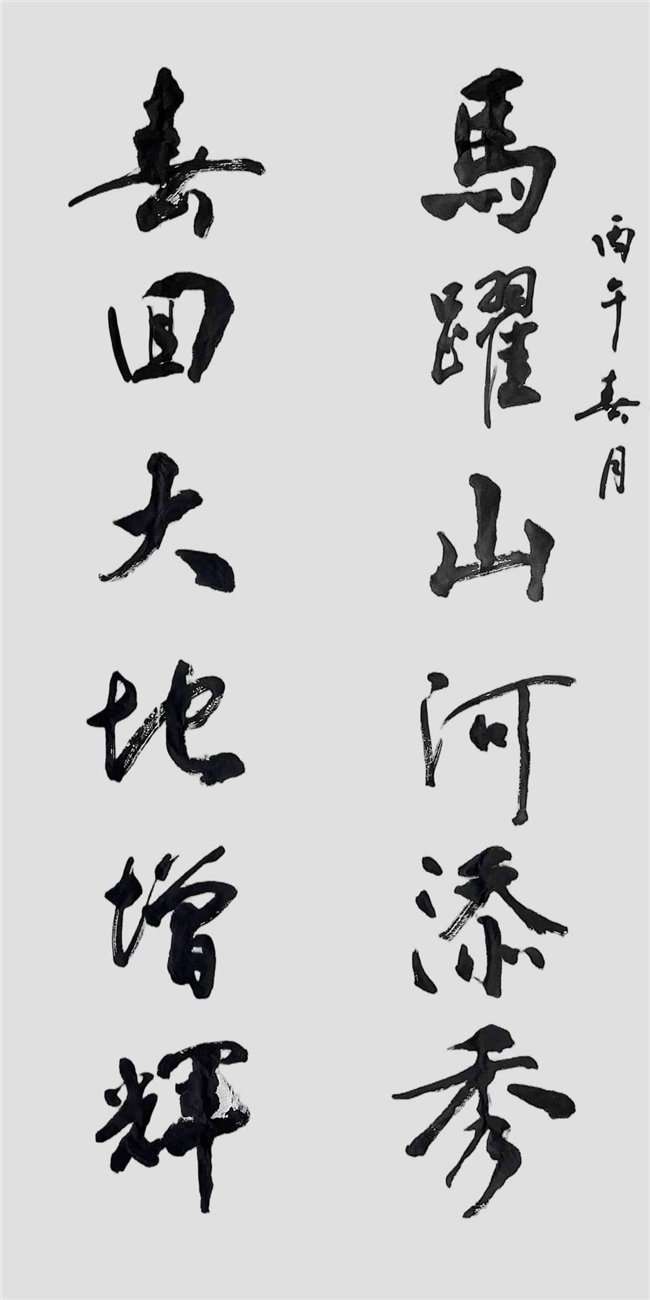 丙午春月
馬躍山河添秀
春回大地增輝